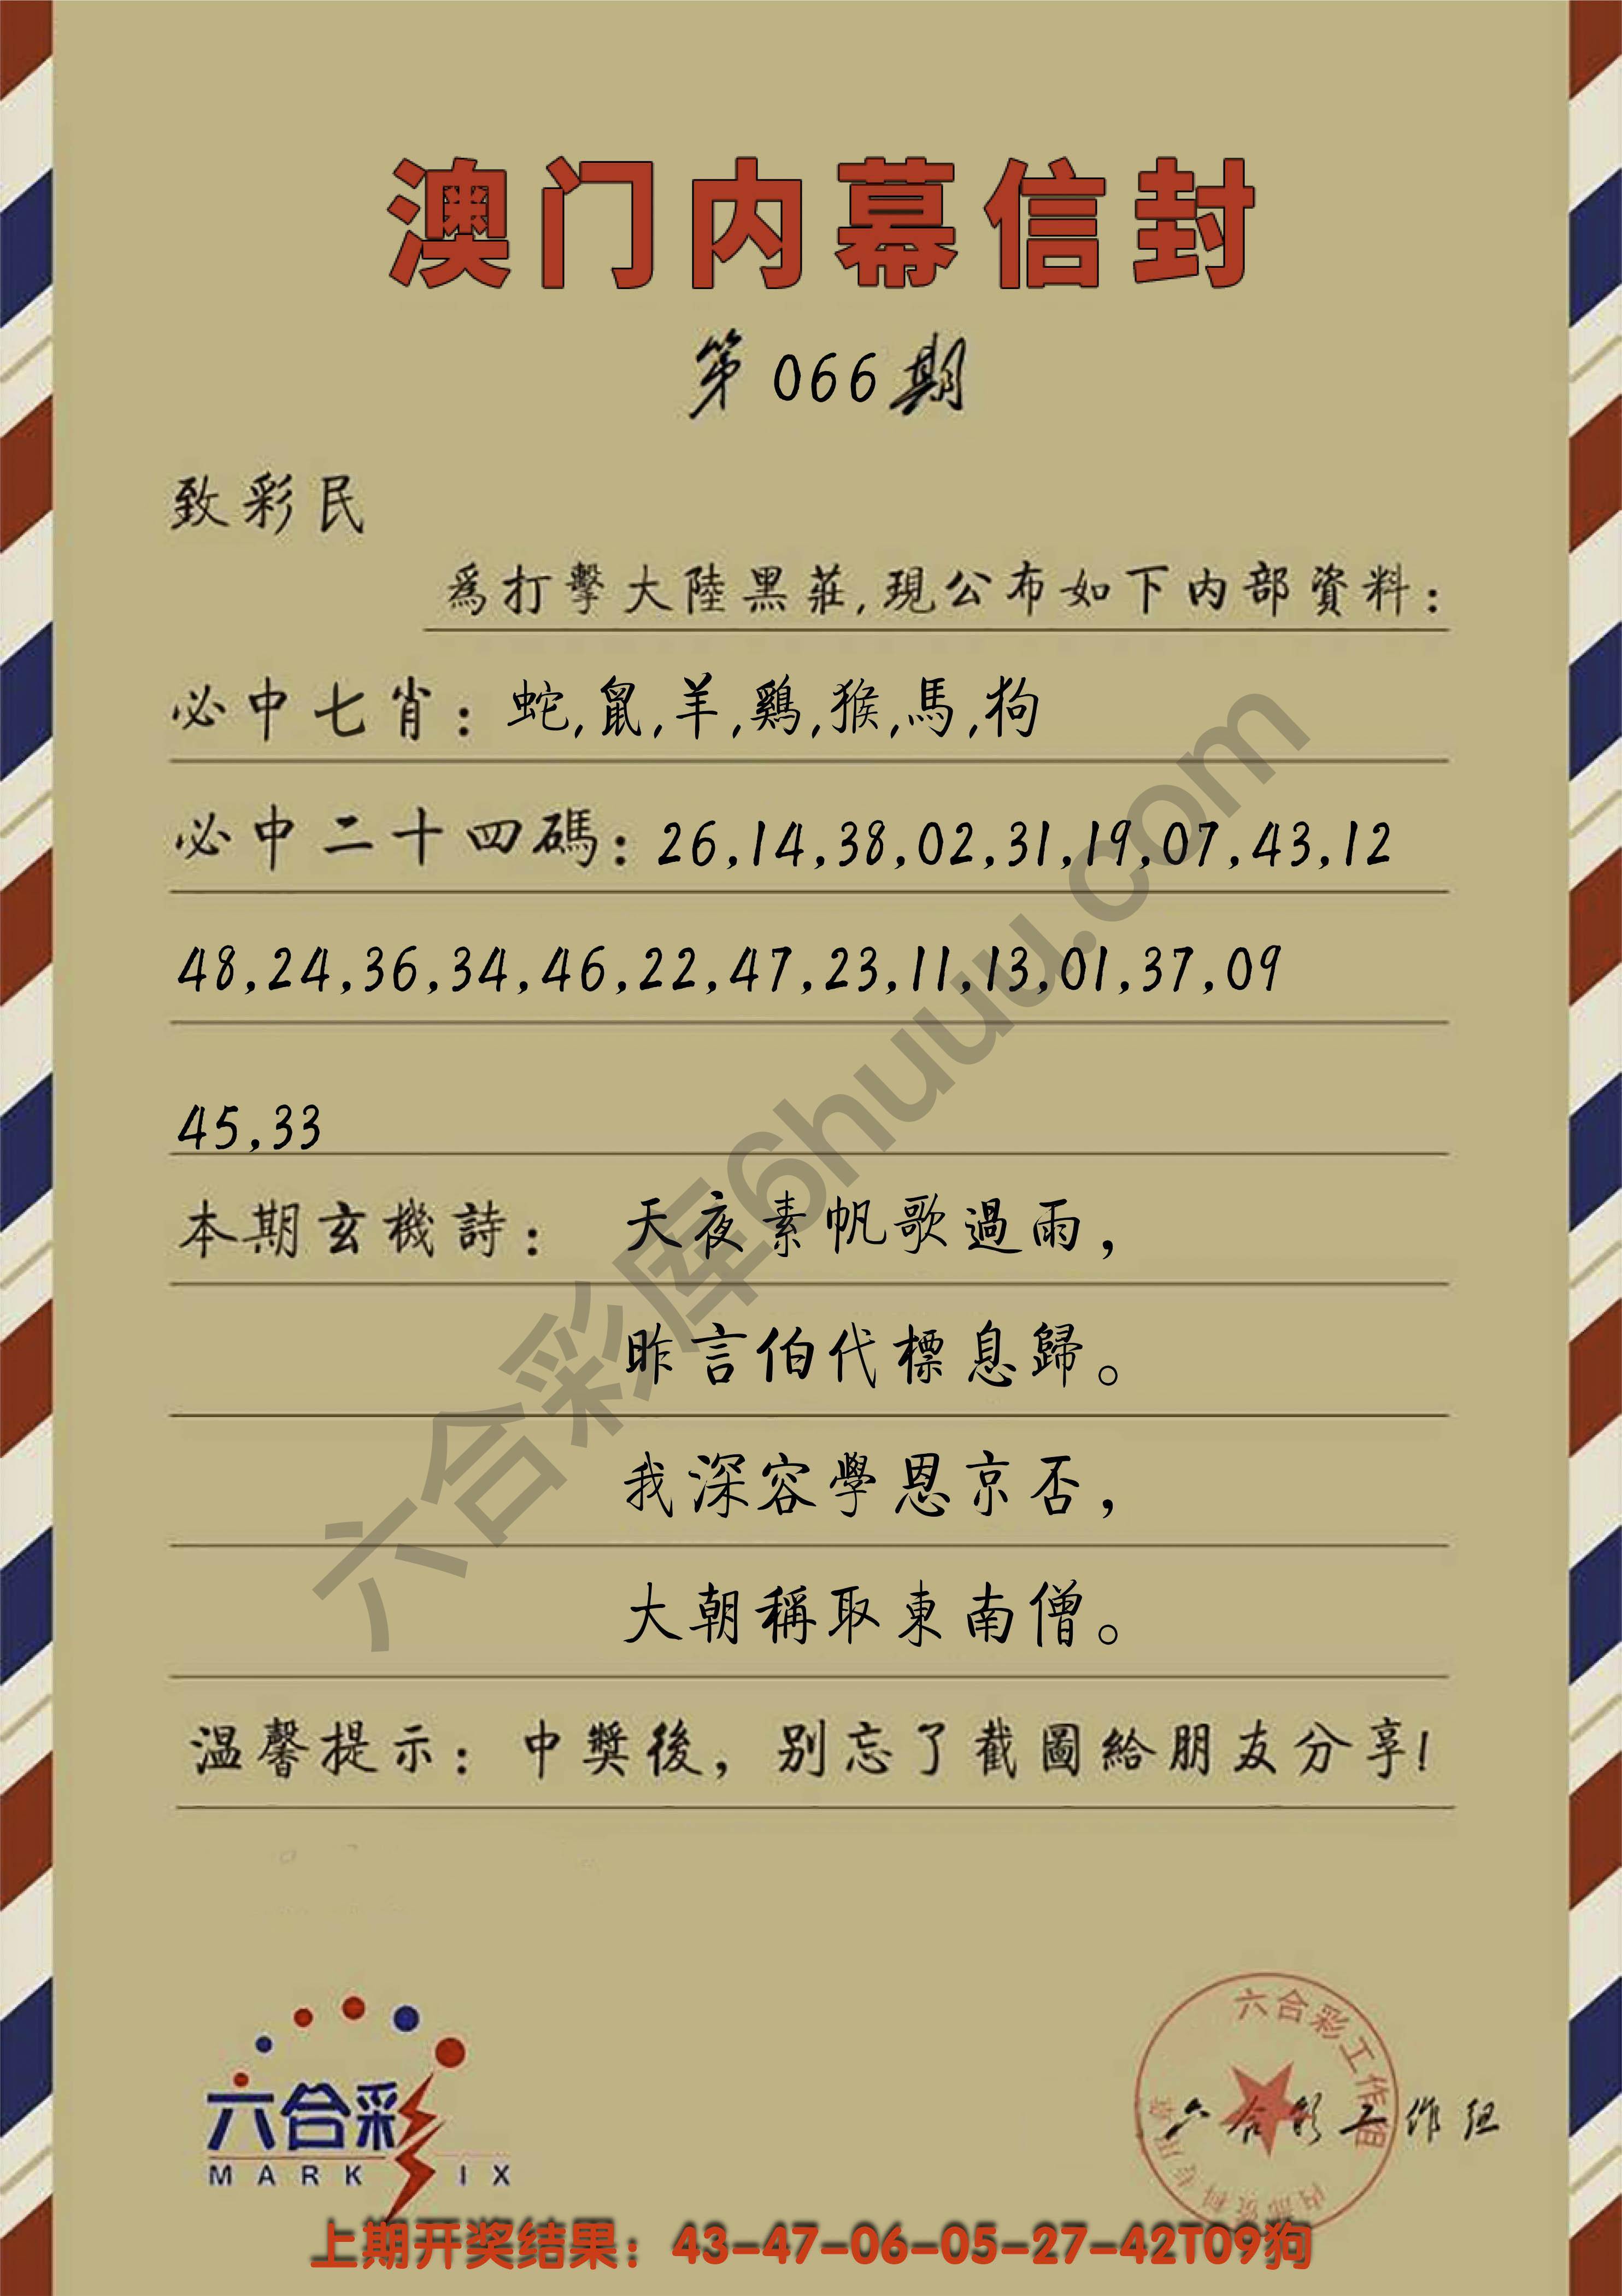 澳门内幕信封
第066期
致彩民
爲打擊大陸黑莊,現公布如下内部資料:
必中七肖:蛇,鼠,羊,鷄,猴,馬,狗
必中二十四碼:26,14,38,02,31,19,07,43,12
48,24,36,34,46,22,47,23,11,13,01,37,09
45,33
本期玄機詩:天夜素帆歌過雨,
昨言伯代標息歸。
我深容學恩京否,
大朝稱取東南僧。
温馨提示:中獎後,别忘了截圖給朋友分享!
六合彩库6huuu.com
六合彩
MARK SIX
六合彩工作组
内部资料专用章
六合彩工作组
上期开奖结果:43-47-06-05-27-42T09狗